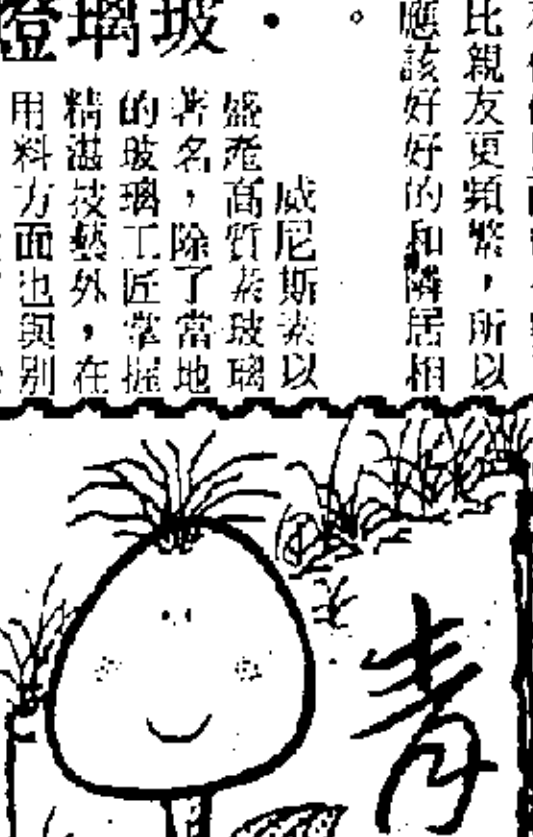 比親友更頻繁，所以
應該好好的和隣居相
。
・玻璃燈
威尼斯素以
盛產高質素玻璃
著名，除了當地
的玻璃工匠掌握
精湛技藝外，在
用料方面也與別
青